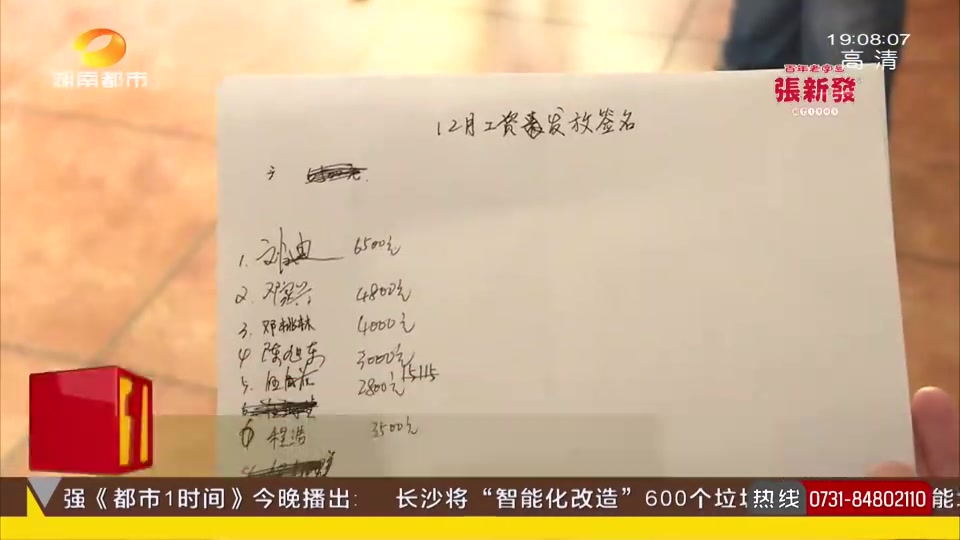 湖南都市
19:08:07
高清
百年老字号
張新發
12月工资表发放签名
1. 刘迪 6500元
2. 邓 4800元
3. 邓桃林 4000元
4 陈旭东 3000元
5. 2800元
6 程浩 3500元
强《都市1时间》今晚播出： 长沙将“智能化改造”600个垃圾
热线 0731-84802110
能